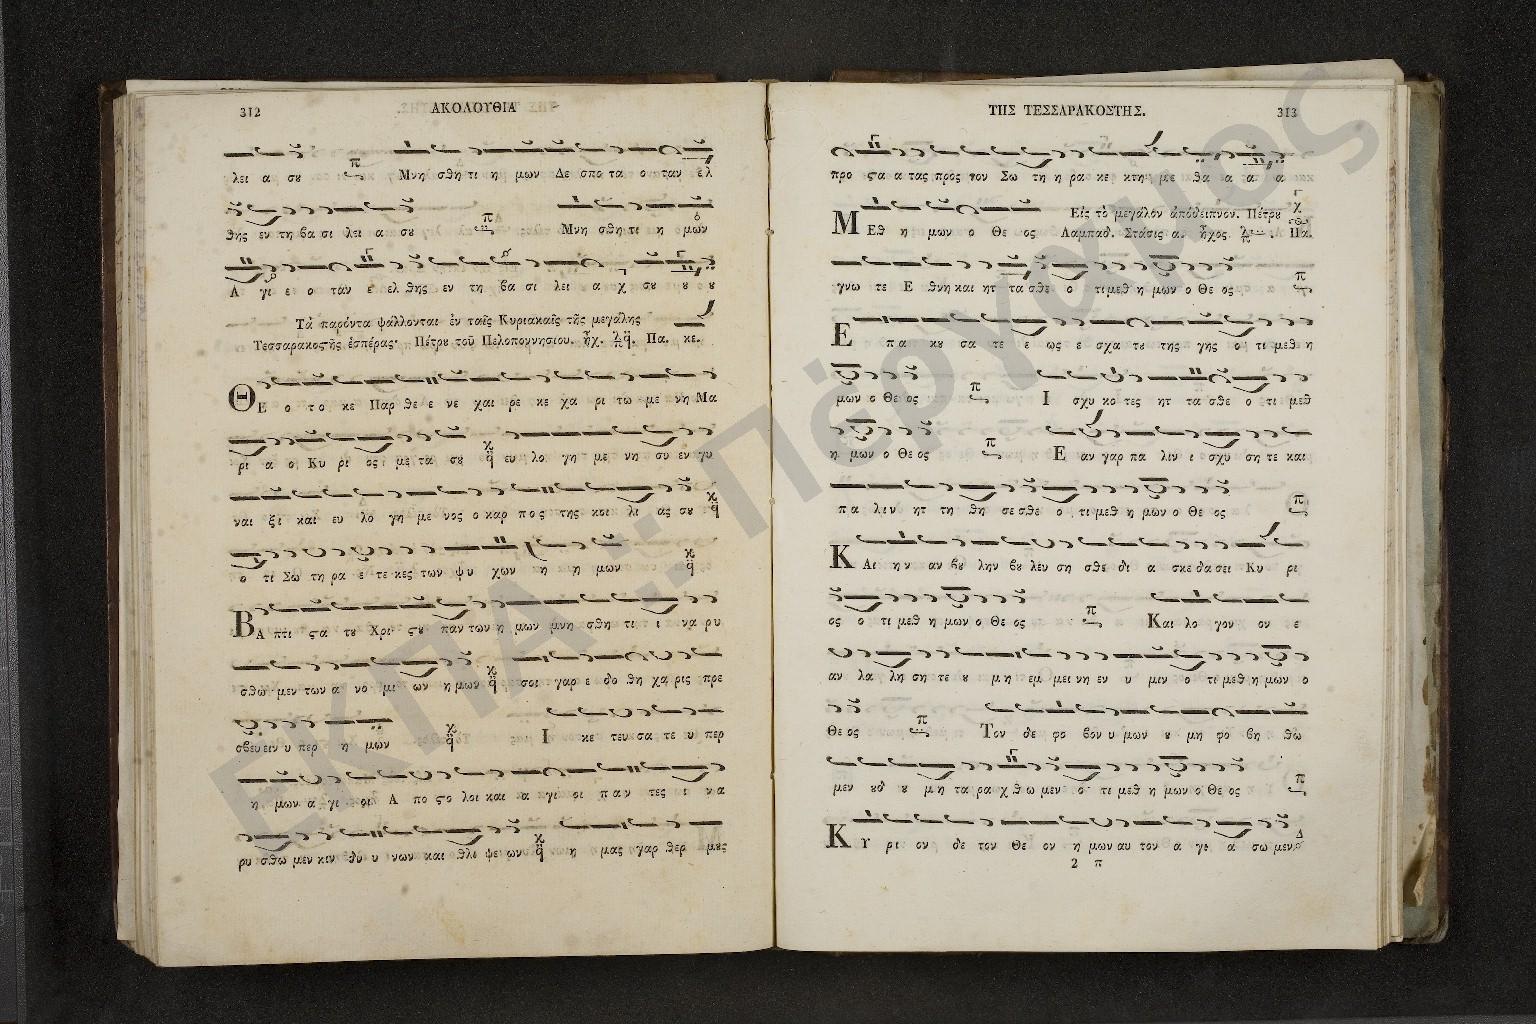 312 ΑΚΟΛΟΥΘΙΑ
λει α σȣ Μνη σθη τι η μων Δε σπο τα ο ταν ελ
θης εν τη βα σι λει α σȣ Μνη σθη τι η μων
Α γι ε ο ταν ε ελ θης εν τη βα σι λει α σȣ ȣ ȣ
Τὰ παρόντα ψάλλονται ἐν ταῖς Κυριακαῖς τῆς μεγάλης
Τεσσαρακοςῆς ἑσπέρας· Πέτρȣ τοῦ Πελοποννησίου. ἦχ. Πα. κε.
ΘΕ ο το κε Παρ θε ε νε χαι ρε κε χα ρι τω με νη Μα
ρι α ο Κυ ρι ος με τα σȣ ευ λο γη με νη συ εν γυ
ναι ξι και ευ λο γη με νος ο καρ πος της κοι λι ας σȣ
ο τι Σω τη ρα ε τε κες των ψυ χων η η μων
ΒΑ πτι ςα τȣ Χρι ςȣ παν των η μων μνη σθη τι ι να ρυ
σθω μεν των α νο μι ων η μων σοι γαρ ε δο θη χα ρις πρε
σβευ ειν υ περ η μων Ι κε τευ σα τε υ περ
η μων α γι οι Α πο ςο λοι και α γι οι παν τες ι να
ρυ σθω μεν κιν δυ υ νων και θλι ψε ων η μας γαρ θερ μȣς
ΤΗΣ ΤΕΣΣΑΡΑΚΟΣΤΗΣ. 313
προ ςα α τας προς τον Σω τη η ρα κε κτη με θα α α α
Εἰς τὸ μεγάλον ἀπόδειπνον. Πέτρȣ
ΜΕθ η μων ο Θε ος Λαμπαδ. Στάσις α. ἦχος Πα.
γνω τε Ε θνη και ητ τα σθε ο τι μεθ η μων ο Θε ος
Ε πα κȣ σα τε ε ως ε σχα τȣ της γης ο τι μεθ η
μων ο Θε ος Ι σχυ κο τες ητ τα σθε ο τι μεθ
η μων ο Θε ος Ε αν γαρ πα λιν ι σχυ ση τε και
πα λιν ητ τη θη σε σθε ο τι μεθ η μων ο Θε ος
ΚΑι ην αν βȣ λην βȣ λευ ση σθε δι α σκε δα σει Κυ ρι
ος ο τι μεθ η μων ο Θε ος Και λο γον ον ε
αν λα λη ση τε ȣ μη εμ μει νη εν υ μιν ο τι μεθ η μων ο
Θε ος Τον δε φο βον υ μων ȣ μη φο βη θω
μεν ȣδ ȣ μη τα ρα χθω μεν ο τι μεθ η μων ο Θε ος
ΚΥ ρι ον δε τον Θε ον η μων αυ τον α γι α σω μεν
2 π
ΕΚΠΑ :: Πέργαμος